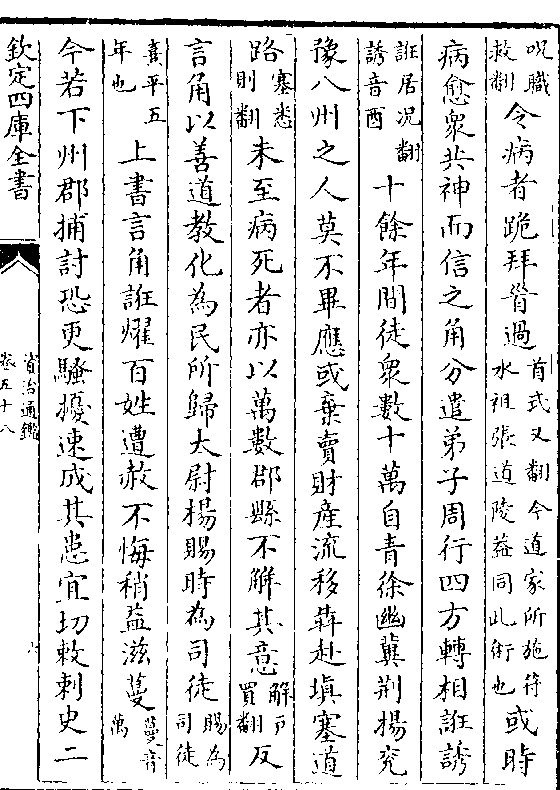 呪職救翻令病者跪拜首過首式又翻今道家所施符水祖張道陵蓋同此術也或時
病愈衆共神而信之角分遣弟子周行四方轉相誑誘
誑居况翻誘音酉十餘年間徒衆數十萬自青徐幽冀荆楊兖
豫八州之人莫不畢應或棄賣財産流移犇赴塡塞道
路塞悉則翻未至病死者亦以萬數郡縣不解其意解戶買翻反
言角以善道教化為民所歸太尉楊賜時為司徒賜為司徒
熹平五年也上書言角誑燿百姓遭赦不悔稍益滋蔓蔓音萬
今若下州郡捕討恐更騷擾速成其患宜切敕刺史二
欽定四庫全書
資治通鑑
卷五十八
六